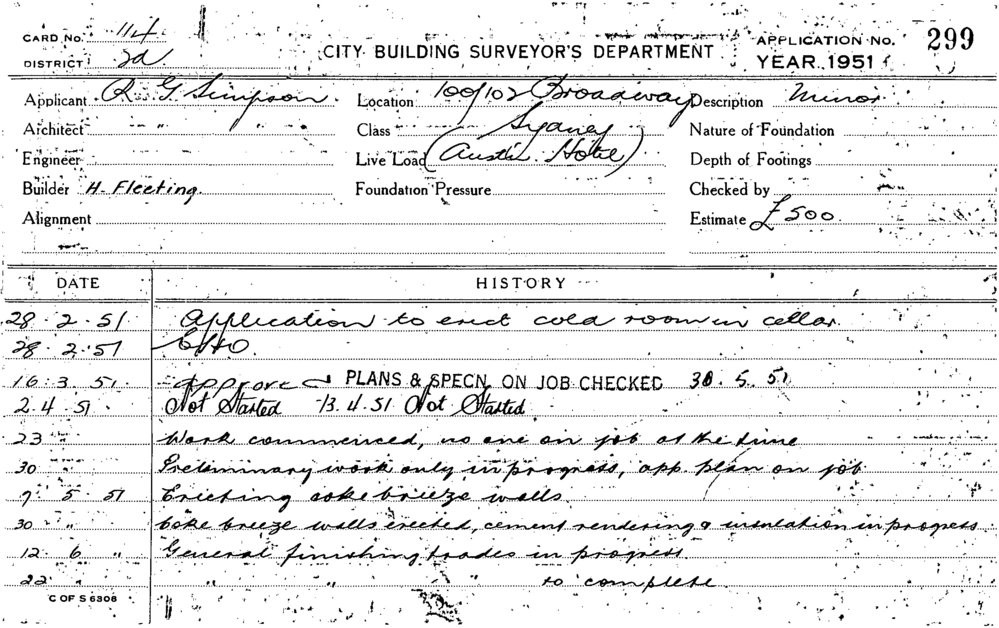 CARD No. 114
DISTRICT 2d
CITY BUILDING SURVEYOR'S DEPARTMENT
APPLICATION No. 299
YEAR 1951
Applicant R. G. Simpson Location 100/102 Broadway Description Minor
Architect " " Class Sydney Nature of Foundation
Engineer Live Load (Austin Hotel) Depth of Footings
Builder H. Fleeting. Foundation Pressure Checked by
Alignment Estimate £500
DATE HISTORY
28.2.51 Application to erect cold room in cellar.
28.2.51 EHO.
16.3.51. Approved PLANS & SPECN. ON JOB CHECKED 30.5.51
2.4.51 Not Started 13.4.51 Not Started
23 " Work commenced, no one on job at the time
30 " Preliminary work only in progress, app. plan on job
7.5.51 Erecting coke breeze walls
30 " Coke breeze walls erected, cement rendering & insulation in progress
12.6 " General finishing trades in progress.
22 " " " " to complete
C OF S 6308